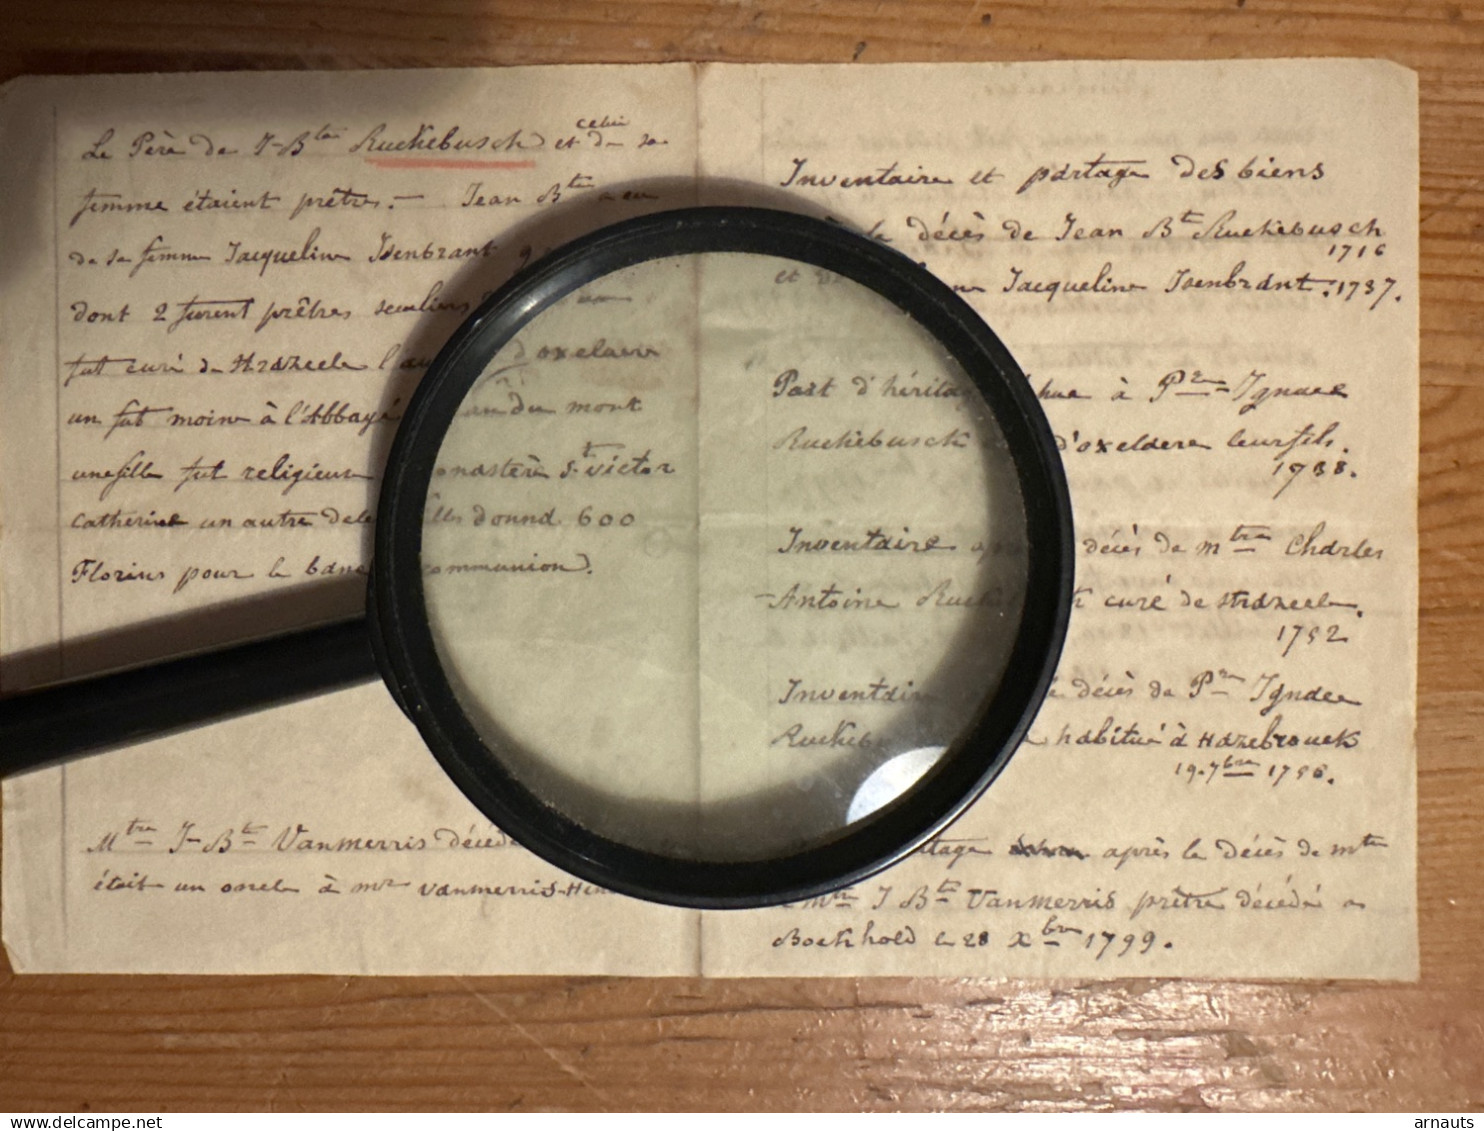 Le Père de J-Bte Ruckebusch et celui de sa
femme étaient prêtres. — Jean Bte a eu
de sa femme Jacqueline Isenbrant 9
dont 2 furent prêtres seculiers
fut curé de Strazeele l'autre d'oxelaere
un fut moine à l'Abbaye du mont
une fille fut religieuse monastère St victor
Catherine un autre filles donna 600
Florins pour le banc communion.
Mtre J-Bte Vanmerris décédé
était un oncle à mr Vanmerris-
Inventaire et partage des biens
le décès de Jean Bt Ruckebusch
1716
et Jacqueline Isenbrant. 1737.
Part d'héritage à Pre Ignace
Ruckebusch d'oxelaere leur fils.
1738.
Inventaire décès de mtre Charles
Antoine curé de Strazeele.
1752
Inventaire décès de Pre Ignace
habitué à Hazebrouck
19. 7bre 1756.
après le décès de mtre
mtre J Bte Vanmerris prêtre décédé a
Bockhold le 28 Xbre 1799.
arnauts